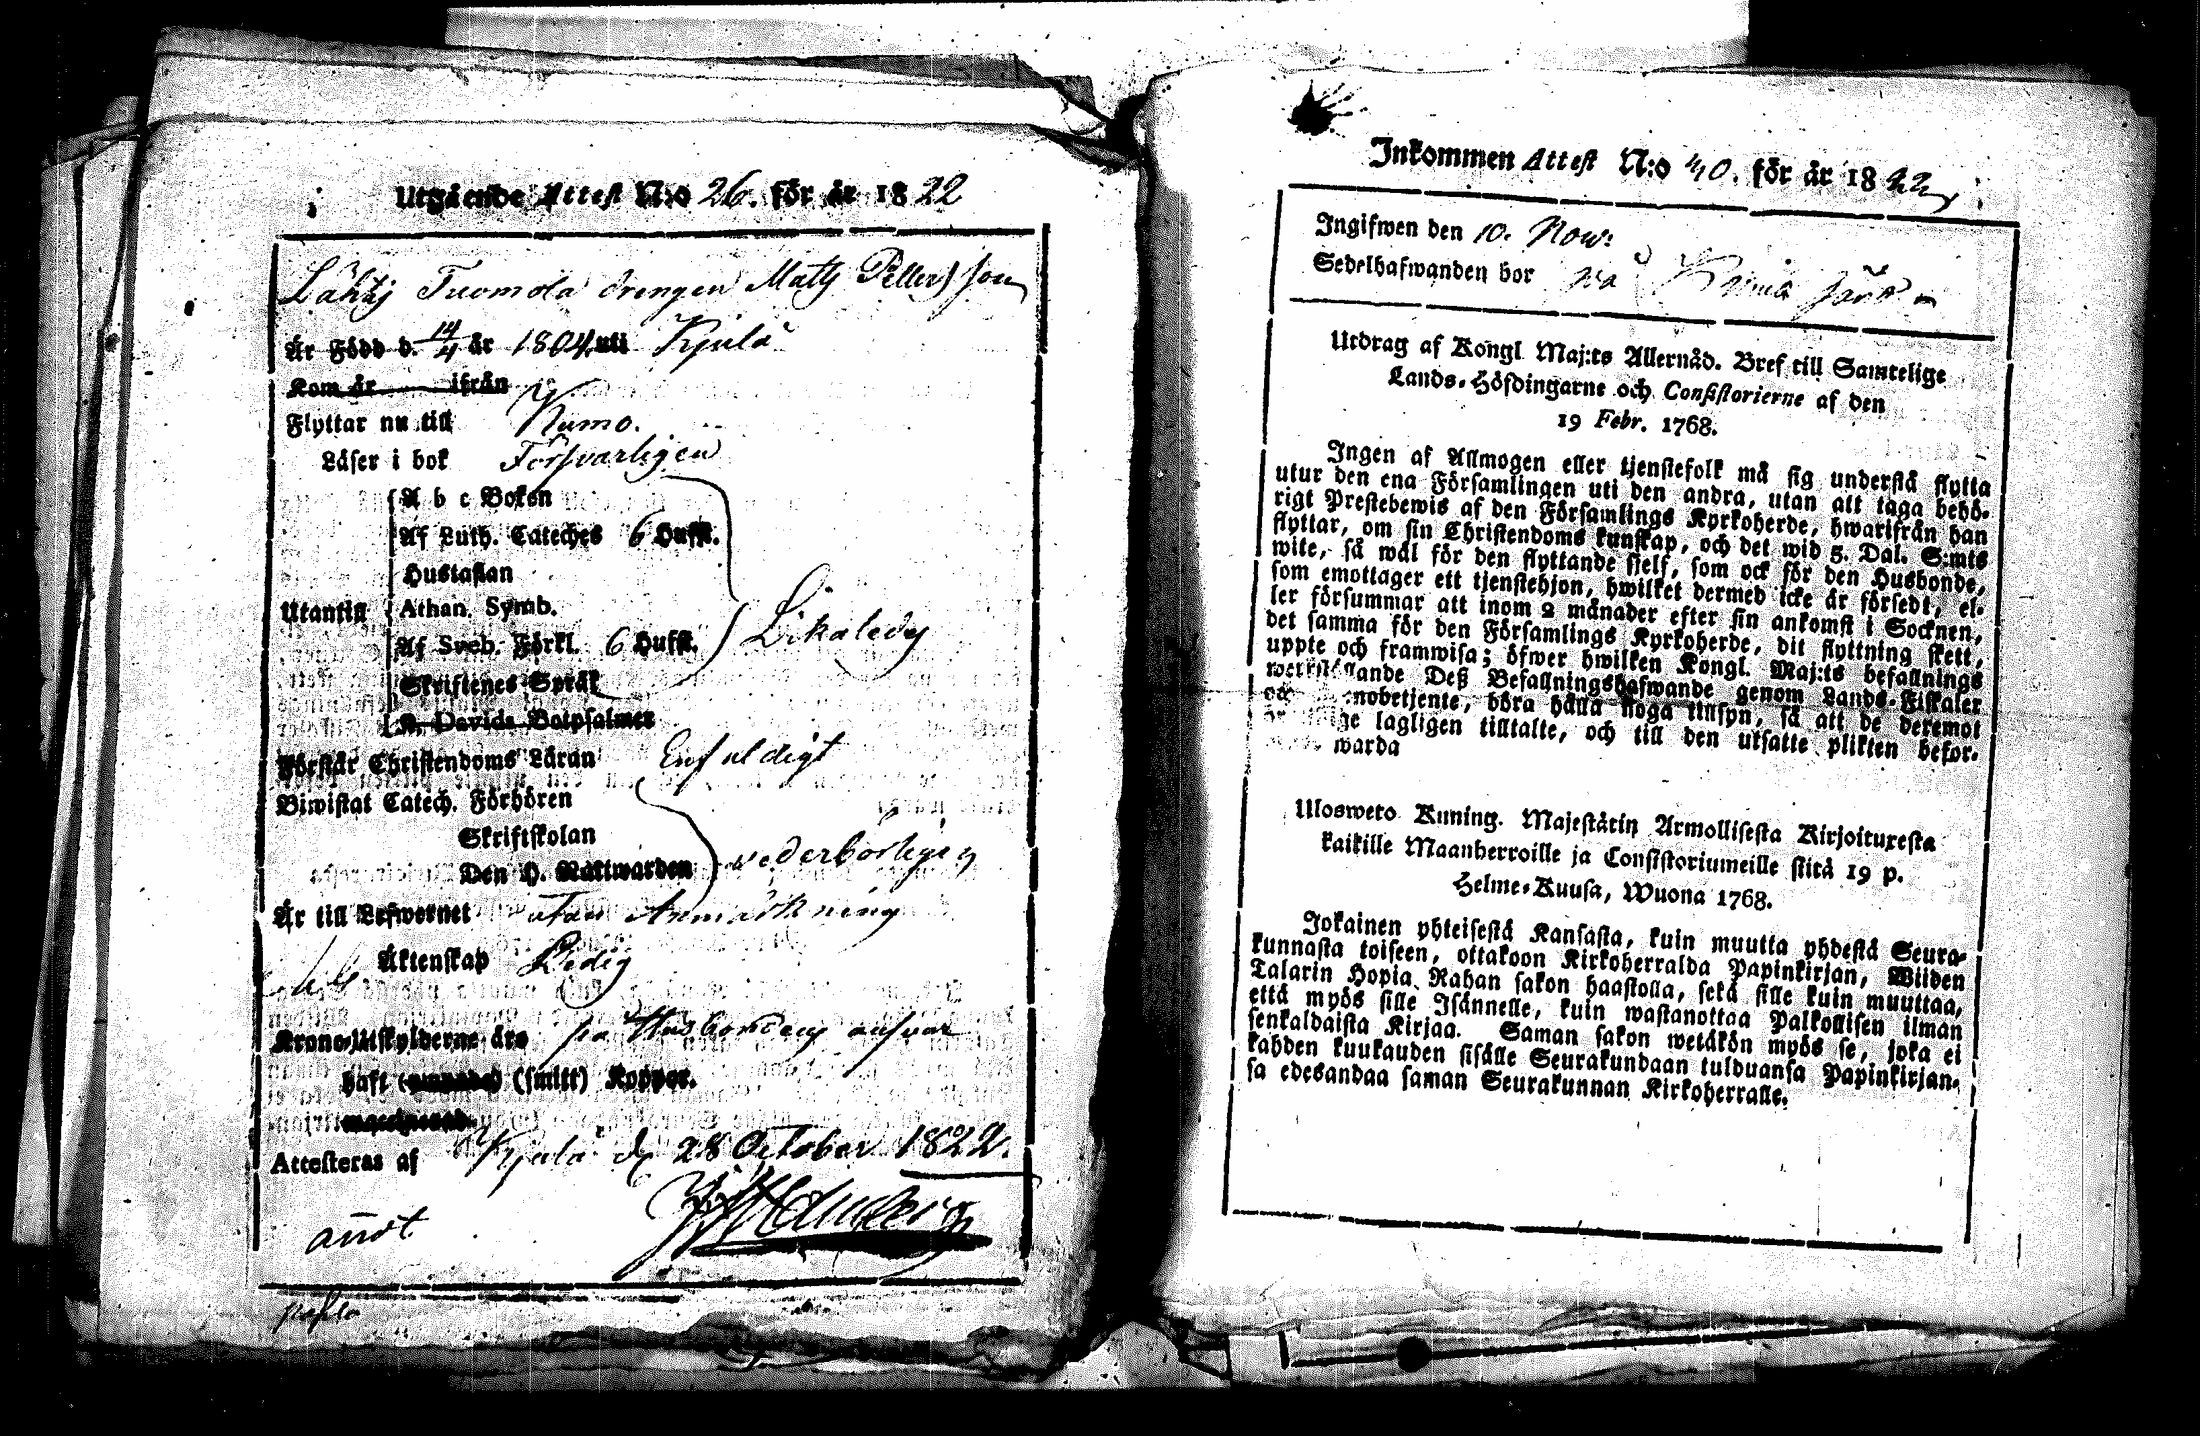 Utgående Attest N:o 26. för år 1822
Lähtj Tuomola drengen Matts Pettersson
Är Född d. 14/4 år 1804 uti Kjulå
Kom år ifrån
Flyttar nu till Kumo.
Läser i bok Försvarligen
A b c Boken
Af Luth. Cateches 6 Hufst.
Hustaflan
Utantill Athan. Symb.
Af Sveb. Förkl. 6 Hufst. Likaledes
Skriftenes Språk
K. Davids Botpsalmer
Förstår Christendoms Läran Enfaldigt
Biwistat Catech. Förhören
Skriftskolan
Den H. Nattwarden vederbörligen
Är till Lefwernet utan Anmärkning
Äktenskap Ledig
Krono-Utskylderne äro på Husbondens ansvar
Haft (smitt) Koppor.
Attesteras af Kjulå d. 28 October 1822.
Inkommen Attest N:o 40. för år 1822
Ingifwen den 10. Nov:
Sedelhafwanden bor på
Utdrag af Kongl. Maj:ts Allernåd. Bref till Samtelige
Lands-Höfdingarne och Consistorierne af den
19 Febr. 1768.
Ingen af Allmogen eller tjenstefolk må sig understå flytta
utur den ena Församlingen uti den andra, utan att taga behö-
rigt Prestebewis af den Församlings Kyrkoherde, hwarifrån han
flyttar, om sin Christendoms kunskap, och det wid 5. Dal. S:mts
wite, så wäl för den flyttande sielf, som ock för den Husbonde,
som emottager ett tjenstehjon, hwilket dermed icke är försedt, el-
ler försummar att inom 2 månader efter sin ankomst i Socknen,
det samma för den Församlings Kyrkoherde, dit flyttning skett,
uppte och framwisa; öfwer hwilken Kongl. Maj:ts befallnings
werkställande Deß Befallningshafwande genom Lands-Fiskaler
och nobetjente, böra hålla noga tillsyn, så att de deremot
lagligen tilltalte, och till den utsatte plikten befor-
warda
Ulosweto Kuning. Majestätin Armollisesta Kirjoituxesta
kaikille Maanherroille ja Consistoriumeille siitä 19 p.
Helme-Kuusa, Wuona 1768.
Jokainen yhteisestä Kansasta, kuin muutta yhdestä Seura-
kunnasta toiseen, ottakoon Kirkoherralda Papinkirjan, Wiiden
Talarin Hopia Rahan sakon haastolla, sekä sille kuin muuttaa,
että myös sille Isännelle, kuin wastanottaa Palkollisen ilman
senkaldaista Kirjaa. Saman sakon wetäkön myös se, joka ei
kahden kuukauden sisälle Seurakundaan tulduansa Papinkirjan-
sa edesandaa saman Seurakunnan Kirkoherralle.